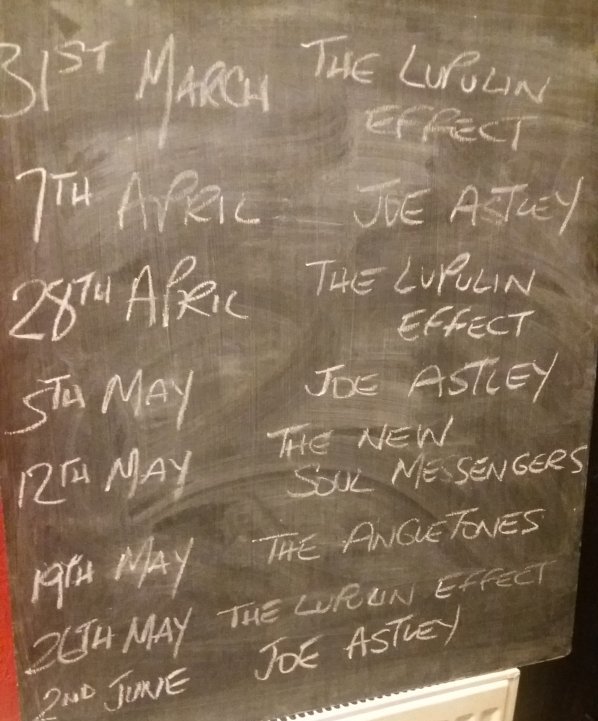 31ST MARCH THE LUPULIN
EFFECT
7TH APRIL JOE ASTLEY
28TH APRIL THE LUPULIN
EFFECT
5TH MAY JOE ASTLEY
12TH MAY THE NEW
SOUL MESSENGERS
19TH MAY THE ANGLETONES
26TH MAY THE LUPULIN EFFECT
2ND JUNE JOE ASTLEY